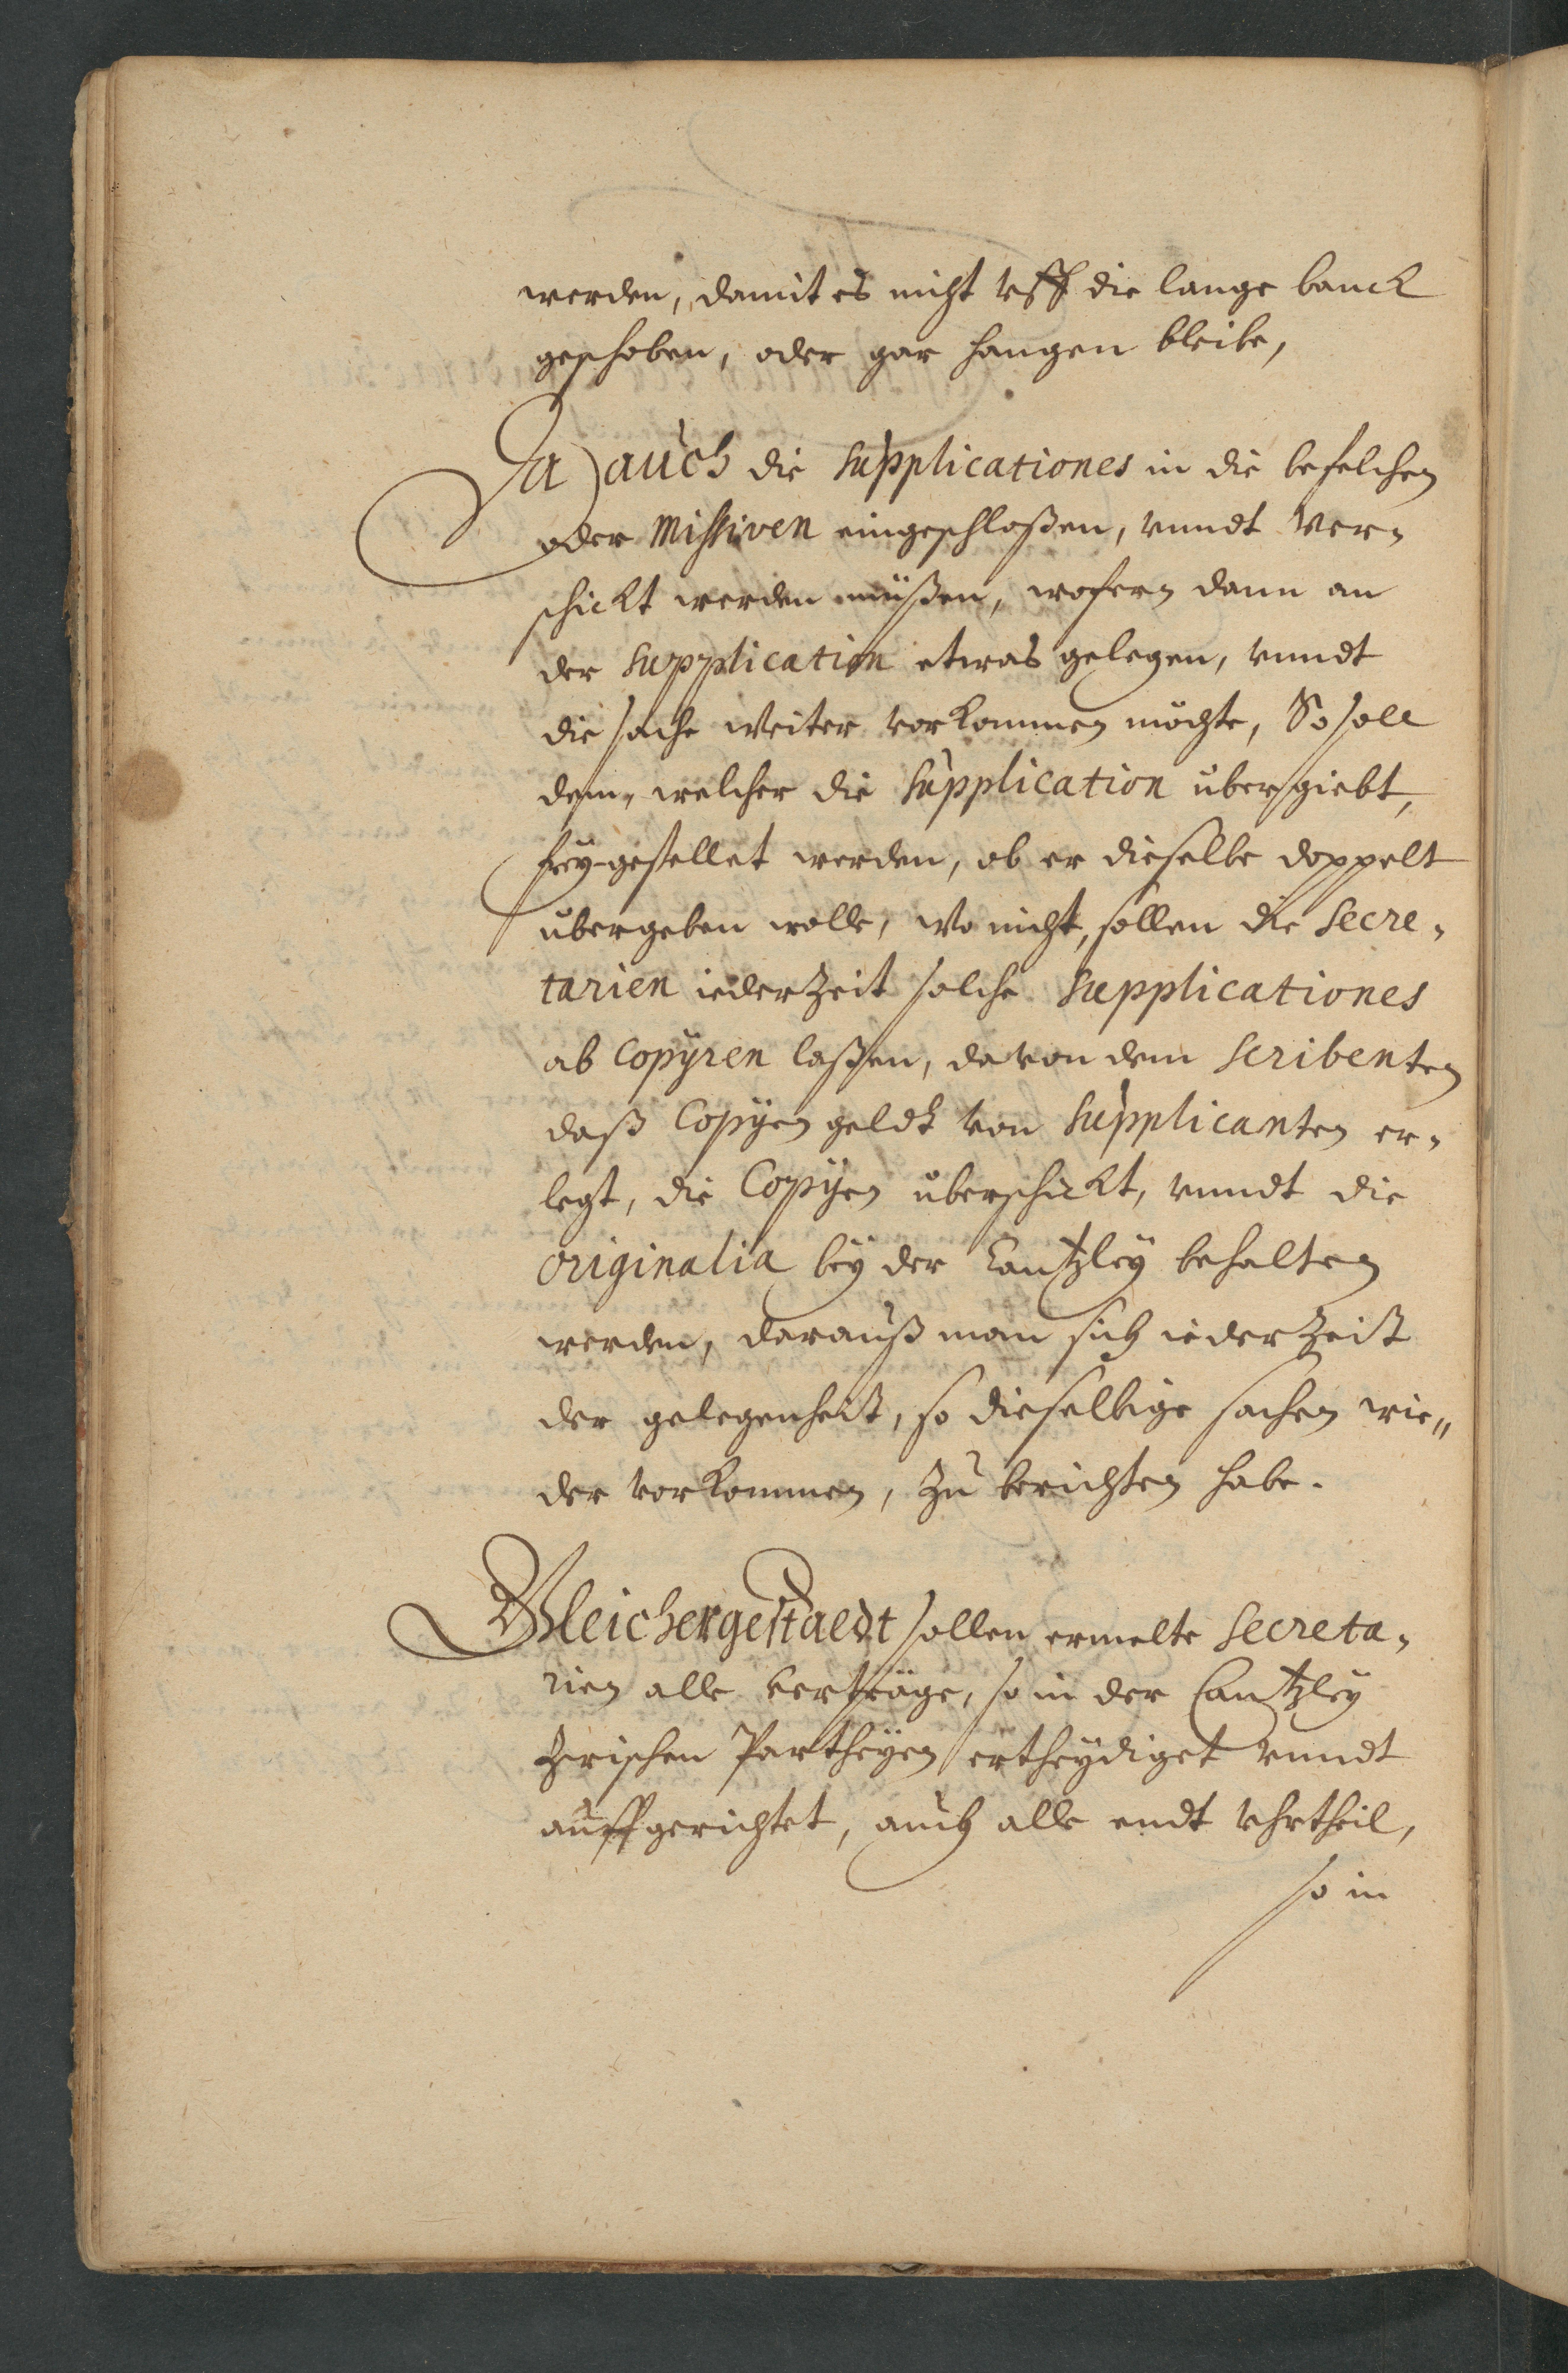 werden, damit es nicht vff die lange banck
geschoben, oder gar hangen bleibe,
Da auch die Supplicationes in die befelchen
oder Missiven eingeschloßen, vnndt ver=
schickt werden müßen, wofern dann an
der Supplication etwas gelegen, vnndt
die sache weiter vorkommen möchte, So soll
dem, welcher die Supplication übergiebt,
frey-gestellet werden, ob er dieselbe doppelt
übergeben wolle, wo nicht, sollen die Secre=
tarien ieder Zeit solche Supplicationes
ab Copyren laßen, da von dem Scribenten
daß Copyen geldt von Supplicanten er=
legt, die Copyen überschickt, vnndt die
Originalia bey der Cantzley behalten
werden, darauß man sich ieder Zeit
der gelegenheit, so dieselbige sachen wie=
der vorkommen, zu berichten habe.
Gleichergestaldt sollen ermelte Secreta=
rien alle verträge, so in der Cantzley
zwischen Partheyen ertheydiget vnndt
auffgerichtet, auch alle endt vhrtheil,
so in